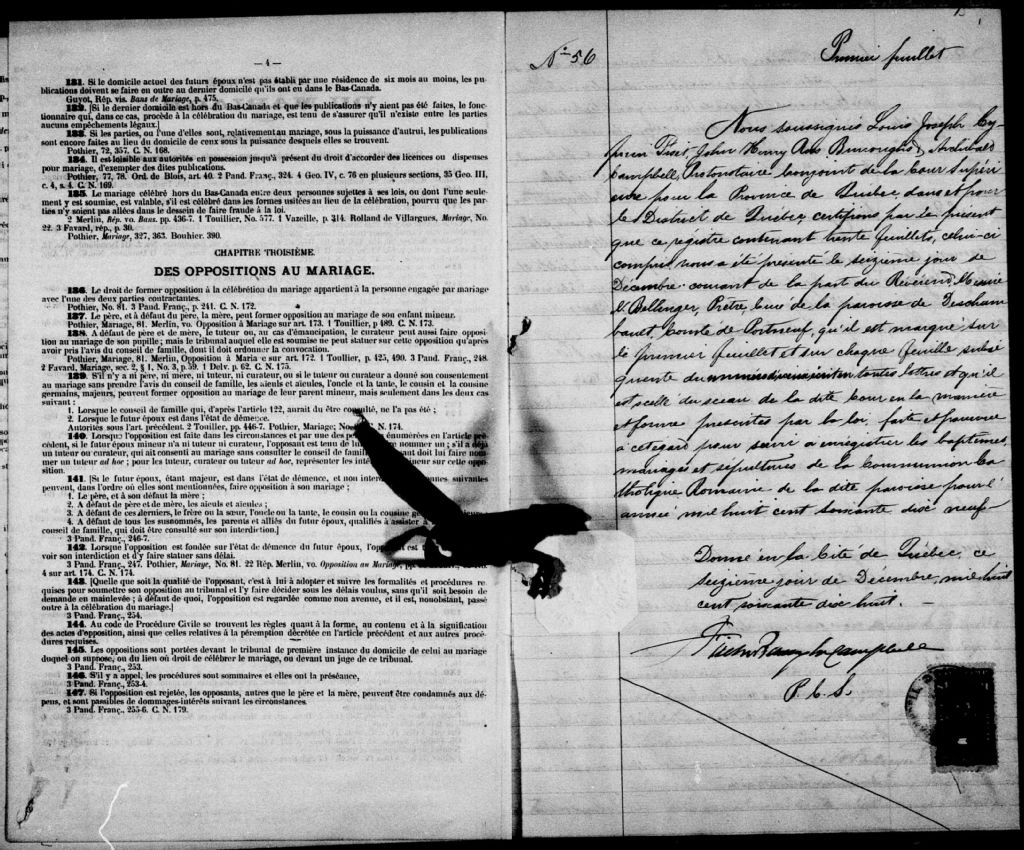 — 4 —
131. Si le domicile actuel des futurs époux n'est pas établi par une résidence de six mois au moins, les pu-
blications doivent se faire en outre au dernier domicile qu'ils ont eu dans le Bas-Canada.
Guyot, Rép. vis. Bans de Mariage, p. 475.
132. [Si le dernier domicile est hors du Bas-Canada et que les publications n'y aient pas été faites, le fonc-
tionnaire qui, dans ce cas, procède à la célébration du mariage, est tenu de s'assurer qu'il n'existe entre les parties
aucuns empêchements légaux.]
133. Si les parties, ou l'une d'elles sont, relativement au mariage, sous la puissance d'autrui, les publications
sont encore faites au lieu du domicile de ceux sous la puissance desquels elles se trouvent.
Pothier, 72, 357. C. N. 168.
134. Il est loisible aux autorités en possession jusqu'à présent du droit d'accorder des licences ou dispenses
pour mariage, d'exempter des dites publications.
Pothier, 77, 78. Ord. de Blois, art. 40. 2 Pand. Franç., 324. 4 Geo. IV, c. 76 en plusieurs sections, 35 Geo. III,
c. 4, s. 4. C. N. 169.
135. Le mariage célébré hors du Bas-Canada entre deux personnes sujettes à ses lois, ou dont l'une seule-
ment y est soumise, est valable, s'il est célébré dans les formes usitées au lieu de la célébration, pourvu que les par-
ties n'y soient pas allées dans le dessein de faire fraude à la loi.
2 Merlin, Rép. vo. Bans. pp. 436-7. 1 Touillier, No. 577. 1 Vazeille, p. 314. Rolland de Villargues, Mariage, No.
22. 3 Favard, rép., p. 30.
Pothier, Mariage, 327, 363. Bouhier. 390.
CHAPITRE TROISIÈME.
DES OPPOSITIONS AU MARIAGE.
136. Le droit de former opposition à la célébrition du mariage appartient à la personne engagée par mariage
avec l'une des deux parties contractantes.
Pothier, No. 81. 3 Pand. Franç., p. 241. C. N. 172.
137. Le père, et à défaut du père, la mère, peut former opposition au mariage de son enfant mineur.
Pothier, Mariage, 81. Merlin, vo. Opposition à Mariage sur art. 173. 1 Touillier, p 489. C. N. 173.
138. A défaut de père et de mère, le tuteur ou, au cas d'émancipation, le curateur peut aussi faire opposi-
tion au mariage de son pupille; mais le tribunal auquel elle est soumise ne peut statuer sur cette opposition qu'après
avoir pris l'avis du conseil de famille, dont il doit ordonner la convocation.
Pothier, Mariage, 81. Merlin, Opposition à Maria e sur art. 172. 1 Toullier, p. 425, 490. 3 Pand. Franç., 248.
2 Favard, Mariage, sec. 2, § 1, No. 3, p. 59. 1 Delv. p. 62. C. N. 175.
139. S'il n'y a ni père, ni mère, ni tuteur, ni curateur, ou si le tuteur ou curateur a donné son consentement
au mariage sans prendre l'avis du conseil de famille, les aïeuls et aïeules, l'oncle et la tante, le cousin et la cousine
germains, majeurs, peuvent former opposition au mariage de leur parent mineur, mais seulement dans les deux cas
suivant :
1. Lorsque le conseil de famille qui, d'après l'article 122, aurait du être consulté, ne l'a pas été ;
2. Lorsque le futur époux est dans l'état de démence.
Autorités sous l'art précédent. 2 Touiller, pp. 446-7. Pothier, Mariage; No. N. 174.
140. Lorsque l'opposition est faite dans les circonstances et par une des énumérées en l'article pré-
cédent, si le futur époux mineur n'a ni tuteur ni curateur, l'opposant est tenu de lui nommer un ; s'il a déjà
un tuteur ou curateur, qui ait consenti au mariage sans consulter le conseil de famille, doit lui faire nom-
mer un tuteur ad hoc ; pour les tuteur, curateur ou tuteur ad hoc, représenter les intérêts mineur sur cette oppo-
sition.
141. [Si le futur époux, étant majeur, est dans l'état de démence, et non suivantes
peuvent, dans l'ordre où elles sont mentionnées, faire opposition à son mariage ;
1. Le père, et à son défaut la mère ;
2. A défaut de père et de mère, les aïeuls et aïeules ;
3. A défaut de ces derniers, le frère ou la sœur, l'oncle ou la tante, le cousin ou la cousine
4. A défaut de tous les susnommés, les parents et alliés du futur époux, qualifiés à assister
conseil de famille, qui doit être consulté sur son interdiction.]
3 Pand. Franç., 246-7.
142. Lorsque l'opposition est fondée sur l'état de démence du futur époux,
voir son interdiction et d'y faire statuer sans délai.
3 Pand. Franç., 247. Pothier, Mariage, No. 81. 22 Rép. Merlin, vo. Opposition au Mariage,
4 sur art. 174. C. N. 174.
143. [Quelque que soit la qualité de l'opposant, c'est à lui à adopter et suivre les formalités et procédures re-
quises pour soumettre son opposition au tribunal et l'y faire décider sous les délais voulus, sans qu'il soit besoin de
demande en mainlevée ; à défaut de quoi, l'opposition est regardée comme non avenue, et il est, nonobstant, passé
outre à la célébration du mariage.]
3 Pand. Franç., 254.
144. Au code de Procédure Civile se trouvent les règles quant à la forme, au contenu et à la signification
des actes d'opposition, ainsi que celles relatives à la péremption décrétée en l'article précédent et aux autres procé-
dures requises.
145. Les oppositions sont portées devant le tribunal de première instance du domicile de celui au mariage
duquel on suppose, ou du lieu où droit de célébrer le mariage, ou devant un juge de ce tribunal.
3 Pand. Franç., 253.
146. S'il y a appel, les procédures sont sommaires et elles ont la préséance,
3 Pand. Franç., 253-4.
147. Si l'opposition est rejetée, les opposants, autres que le père et la mère, peuvent être condamnés aux dé-
pens, et sont passibles de dommages-intérêts suivant les circonstances.
3 Pand. Franç., 255-6. C. N. 179.
No 56
Premier feuillet
Nous soussignés Louis Joseph Cy-
prien Fiset, John Henry Archibald
Campbell, Protonotaire conjoint de la Cour Supéri
eure pour la Province de Québec, dans et pour
le District de Québec, certifions par le présent
que ce registre contenant trente feuillets, celui-ci
compris nous a été présenté le seizième jour de
Décembre courant de la part du Révérend Messire
N. Bellenger, Prêtre, curé de la paroisse de Descham
bault Comté de Portneuf, qu'il est marqué sur
le premier feuillet et sur chaque feuillet subsé
quent du toutes lettres et qu'il
est scellé du sceau de la dite Cour en la manière
et forme prescrites par la loi, fait et
pour servir à enregistrer les baptêmes,
mariages et sépultures de la Communion Ca
tholique Romaine de la dite paroisse pour l'
année mil huit cent soixante dix neuf-
Donné en la Cité de Québec, ce
seizième jour de Décembre, mil huit
cent soixante dix huit. -
Campbell
P. C. S.